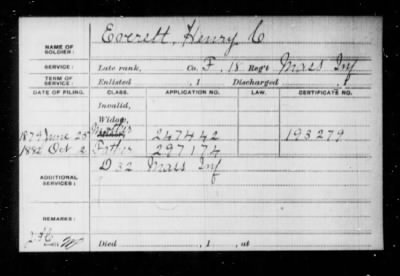 Everett, Henry C
NAME OF SOLDIER:
SERVICE: Late rank, Co. F, 18 Reg't Mass Inf
TERM OF SERVICE: Enlisted , 1 Discharged , 1
DATE OF FILING. CLASS. APPLICATION NO. LAW. CERTIFICATE NO.
Invalid,
Widow,
1879 June 28 Mother 247442 193279
1882 Oct 2 Father 297174
D 32 Mass Inf
ADDITIONAL SERVICES:
REMARKS:
Died , 1 , at